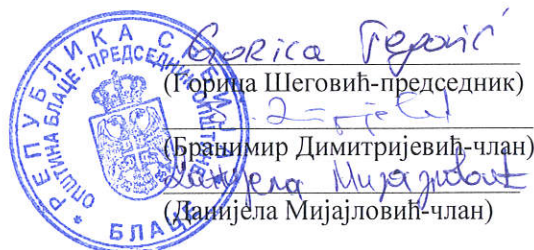 РЕПУБЛИКА СРБИЈА
ОПШТИНА БЛАЦЕ - ПРЕДСЕДНИК ОПШТИНЕ
БЛАЦЕ
Gorica
(Горица Шеговић-председник)
(Бранимир Димитријевић-члан)
Данијела Мијајловић
(Данијела Мијајловић-члан)